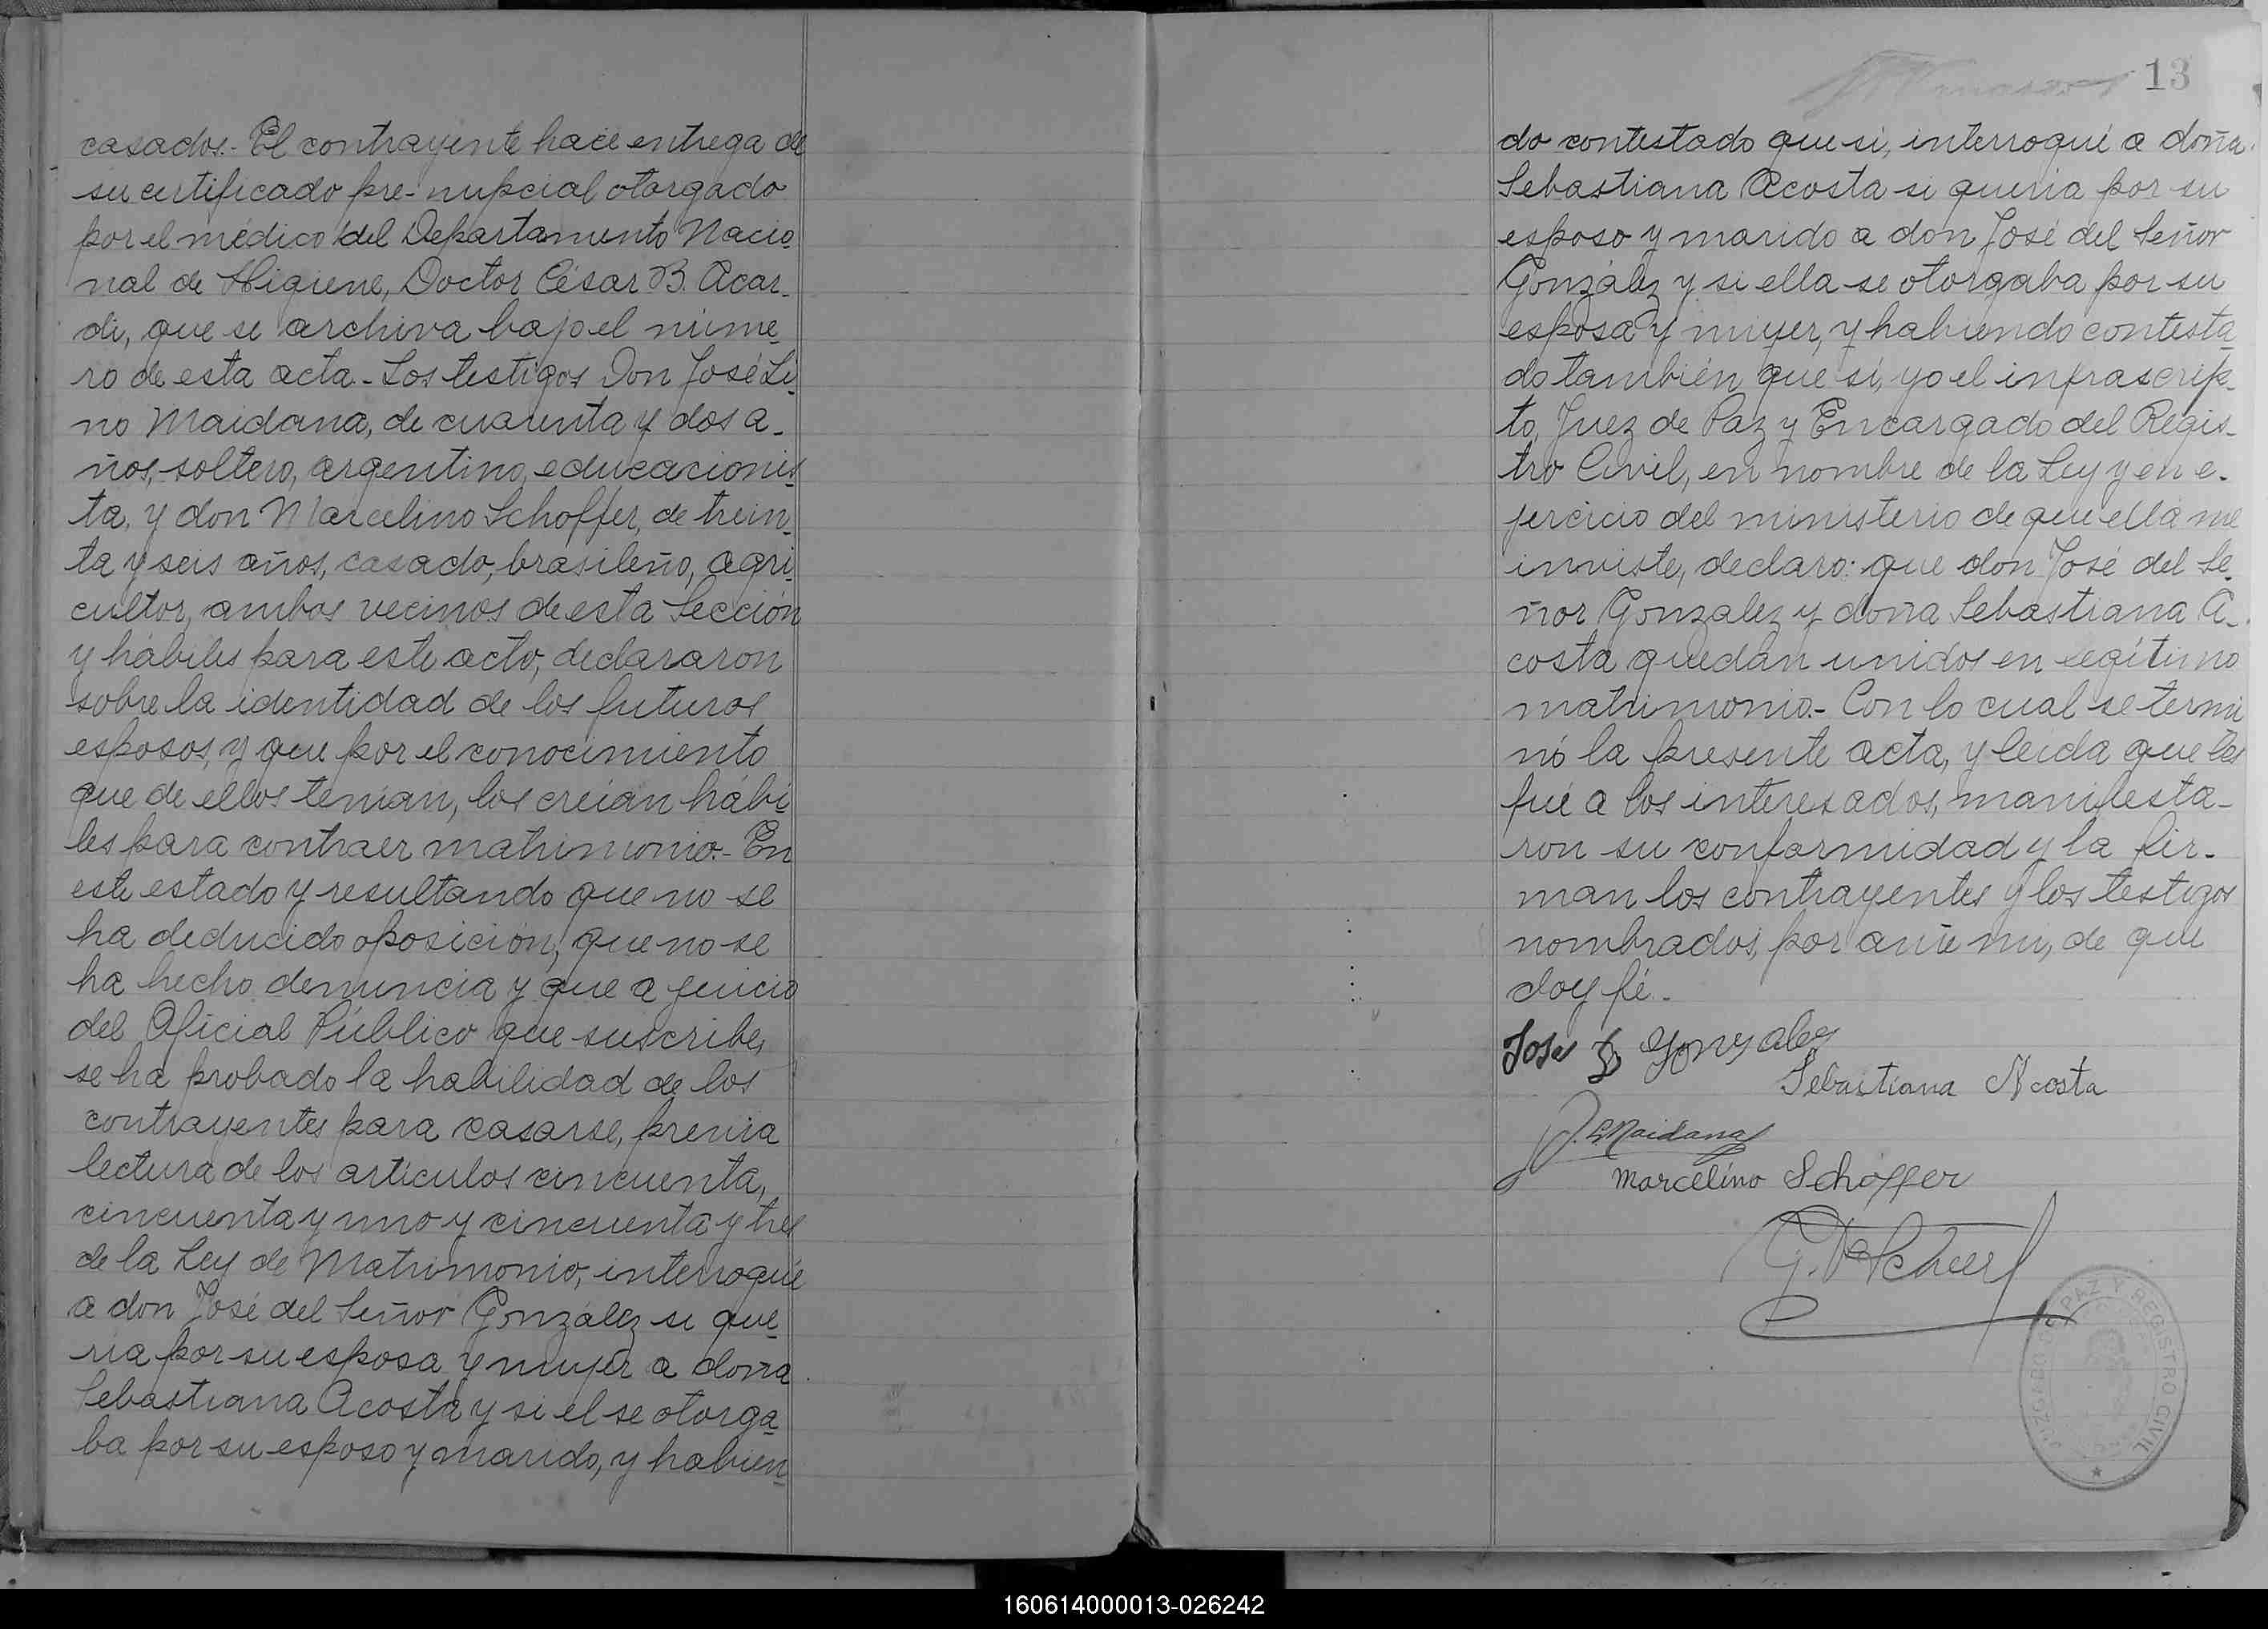 casados.- El contrayente hace entrega de
su certificado pre-nupcial otorgado
por el médico del Departamento Nacio-
nal de Higiene, Doctor César B. Acar-
di, que se archiva bajo el núme-
ro de esta acta.- Los testigos Don José Li-
no Maidana, de cuarenta y dos a-
ños, soltero, argentino, educacionis-
ta, y don Marcelino Schoffer, de trein-
ta y seis años, casado, brasileño, agri-
cultor, ambos vecinos de esta Sección
y hábiles para este acto, declararon
sobre la identidad de los futuros
esposos, y que por el conocimiento
que de ellos tenían, los creían hábi-
les para contraer matrimonio.- En
este estado y resultando que no se
ha deducido oposición, que no se
ha hecho denuncia y que a juicio
del Oficial Público que suscribe,
se ha probado la habilidad de los
contrayentes para casarse, previa
lectura de los artículos cincuenta,
cincuenta y uno y cincuenta y tres
de la Ley de Matrimonio, interrogué
a don José del Señor González si que-
ría por su esposa y mujer a doña
Sebastiana Acosta y si el se otorga-
ba por su esposo y marido, y habien-
13
do contestado que sí, interrogué a doña
Sebastiana Acosta si quería por su
esposo y marido a don José del Señor
González y si ella se otorgaba por su
esposa y mujer, y habiendo contesta-
do también que sí, yo el infrascrip-
to, Juez de Paz y Encargado del Regis-
tro Civil, en nombre de la Ley y en e-
jercicio del ministerio de que ella me
inviste, declaro: que don José del Se-
ñor Gonzalez y doña Sebastiana A-
costa quedan unidos en legítimo
matrimonio.- Con lo cual se termi
nó la presente acta, y leída que les
fué a los interesados, manifesta-
ron su conformidad y la fir-
man los contrayentes y los testigos
nombrados, por ante mi, de que
doy fé.-
José S Gonzales
Sebastiana Acosta
J. L. Maidana
Marcelino Schoffer
JUZGADO DE PAZ Y REGISTRO CIVIL
160614000013-026242